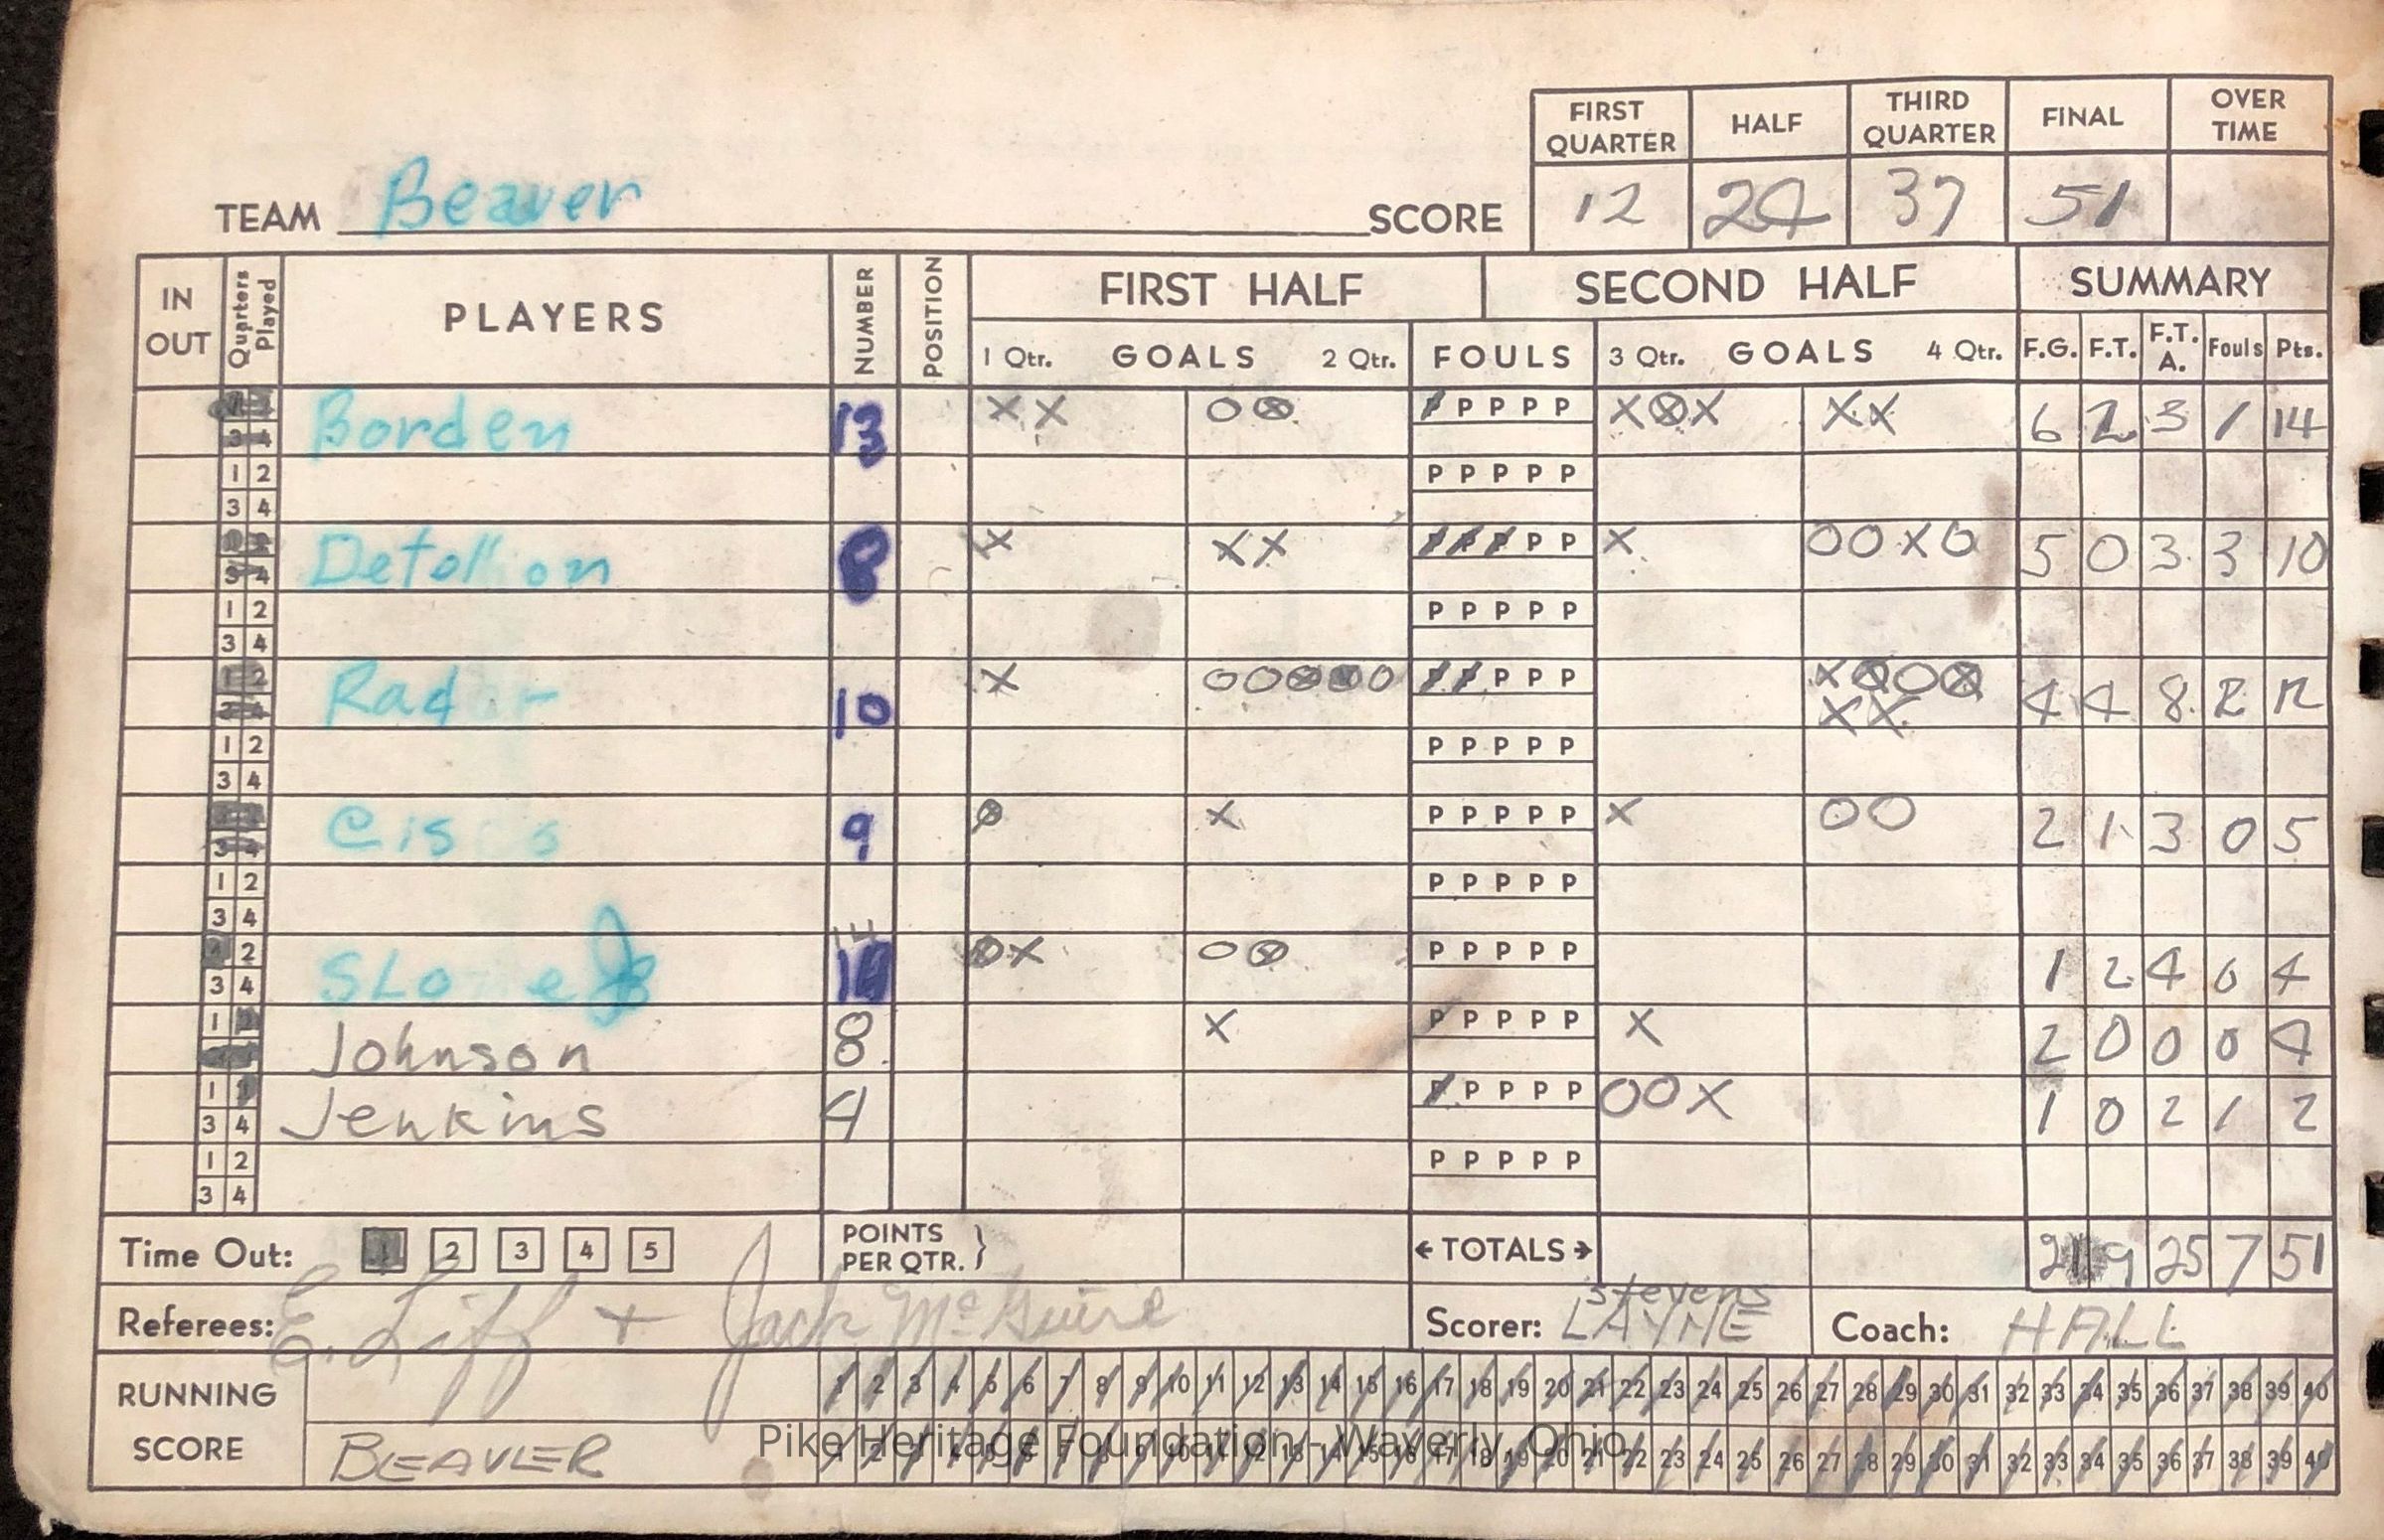 FIRST QUARTER HALF THIRD QUARTER FINAL OVER TIME
TEAM Beaver SCORE 12 24 37 51
IN OUT Quarters Played PLAYERS NUMBER POSITION FIRST HALF SECOND HALF SUMMARY
1 Qtr. GOALS 2 Qtr. FOULS 3 Qtr. GOALS 4 Qtr. F.G. F.T. F.T.A. Fouls Pts.
3 4 Borden 13 X X O ⊗ P P P P P X ⊗ X X X 6 2 3 1 14
1 2 P P P P P
3 4
3 4 X X X P P P P P X O O X O 5 0 3 3 10
1 2 P P P P P
3 4
1 2 Rad 10 X O O ⊗ ⊗ O P P P P P X ⊗ O ⊗ 4 4 8 2 12
3 4 X X
1 2 P P P P P
3 4
3 4 9 ⊗ X P P P P P X O O 2 1 3 0 5
1 2 P P P P P
3 4
1 2 ⊗ X O ⊗ P P P P P 1 2 4 0 4
3 4
1 2 Johnson 8 X P P P P P X 2 0 0 0 4
1 2 Jenkins 4 P P P P P O O X 1 0 2 1 2
3 4
1 2 P P P P P
3 4
Time Out: 1 2 3 4 5 POINTS PER QTR. } ← TOTALS → 21 9 25 7 51
Referees: E. + Jack McGuire Scorer: Stevens LAYNE Coach: HALL
RUNNING 1 2 3 4 5 6 7 8 9 10 11 12 13 14 15 16 17 18 19 20 21 22 23 24 25 26 27 28 29 30 31 32 33 34 35 36 37 38 39 40
SCORE BEAVER 1 2 3 4 5 6 7 8 9 10 11 12 13 14 15 16 17 18 19 20 21 22 23 24 25 26 27 28 29 30 31 32 33 34 35 36 37 38 39 40
Pike Heritage Foundation - Waverly, Ohio